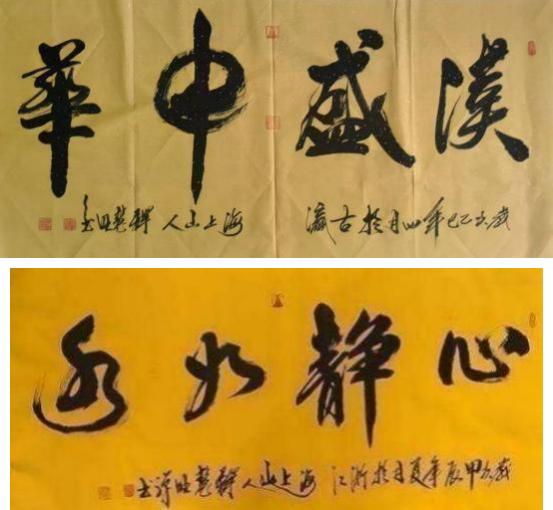 漢盛中華
歲次乙巳年四月於古瀛 海上山人 釋慧旺書
心静如
歲次甲辰年夏月於浙江 海上山人 釋慧旺谨书